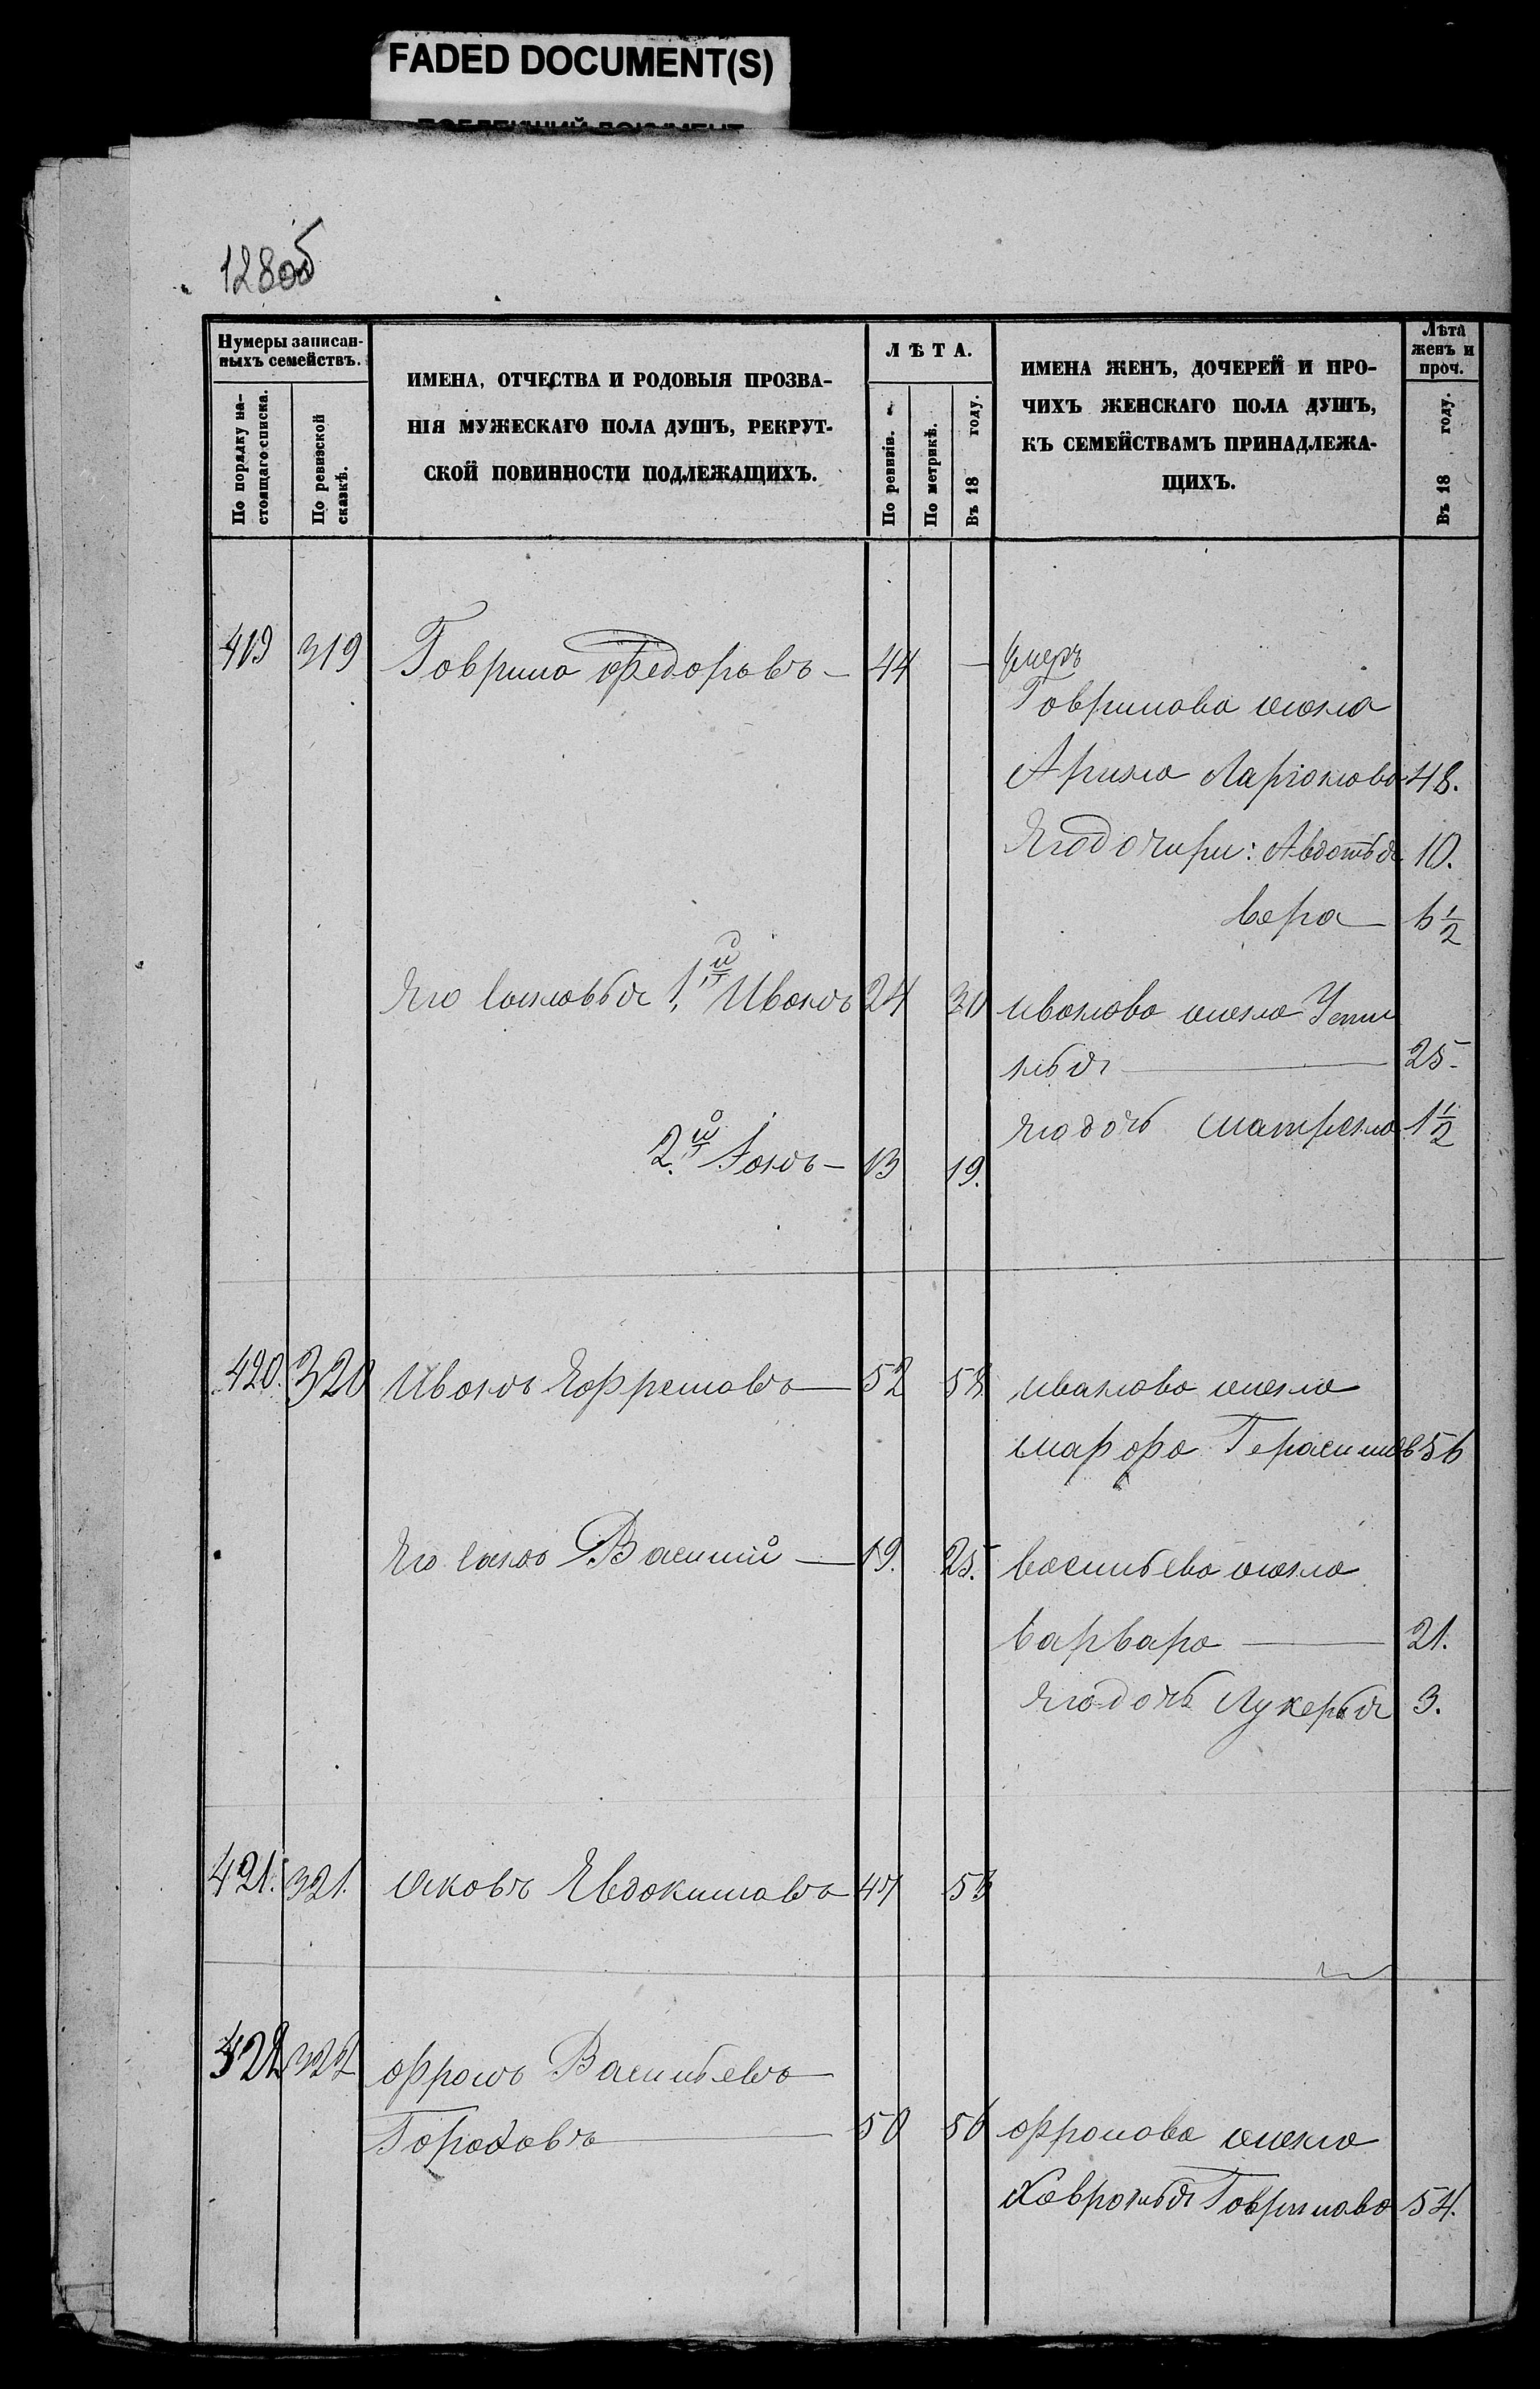 FADED DOCUMENT(S)
128об
Нумеры записан-
ныхъ семействъ.
По порядку на-
стоящаго списка.
По ревизской
сказкѣ.
ИМЕНА, ОТЧЕСТВА И РОДОВЫЯ ПРОЗВА-
НІЯ МУЖЕСКАГО ПОЛА ДУШЪ, РЕКРУТ-
СКОЙ ПОВИННОСТИ ПОДЛЕЖАЩИХЪ.
ЛѢТА.
По ревизіи.
По метрикѣ.
Въ 18 году.
ИМЕНА ЖЕНЪ, ДОЧЕРЕЙ И ПРО-
ЧИХЪ ЖЕНСКАГО ПОЛА ДУШЪ,
КЪ СЕМЕЙСТВАМЪ ПРИНАДЛЕЖА-
ЩИХЪ.
Лѣта
женъ и
проч.
Въ 18 году.
419 319 Гаврила Федоровъ — 44 — умеръ
Гаврилова жена
Арина Ларіонова 48.
Яго дочири: Авдотья 10.
Вера — 6 1/2
Яго Сыновья 1.й Иванъ 24 30 иванова жена Усти
нья — 25.
Яго дочь матрена 1 1/2
2.й Іонъ — 13 19.
420. 320 Иванъ Яфремовъ — 52 58 иванова жена
марфа Герасимов 56
Яго Сынъ Василий — 19. 25. васильева жена
Варвара — 21.
Яго дочь Лукерья 3.
421. 321. Яковъ Явдокимовъ 47 53
422 322 фролъ Васильевъ
50 56 фролова жена
Хавронья Гаврилова 54.